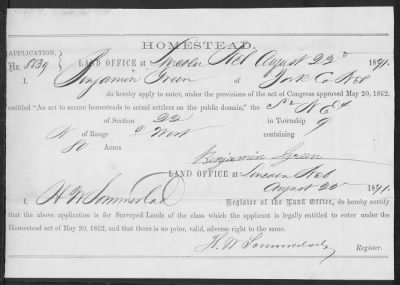 HOMESTEAD.
APPLICATION, LAND OFFICE at Lincoln Neb August 22d 1871.
No.
I, Benjamin Green of York Co Neb
do hereby apply to enter, under the provisions of the act of Congress approved May 20, 1862,
entitled "An act to secure homesteads to actual settlers on the public domain," the S 2 N E 4
of Section 22 in Township 9
N of Range 2 West containing
80 Acres.
Benjamin Green
LAND OFFICE at Lincoln Neb
August 22 1871.
I, H W Sommerlad Register of the Land Office, do hereby certify
that the above application is for Surveyed Lands of the class which the applicant is legally entitled to enter under the
Homestead act of May 20, 1862, and that there is no prior, valid, adverse right to the same.
H. W Sommerlad Register.